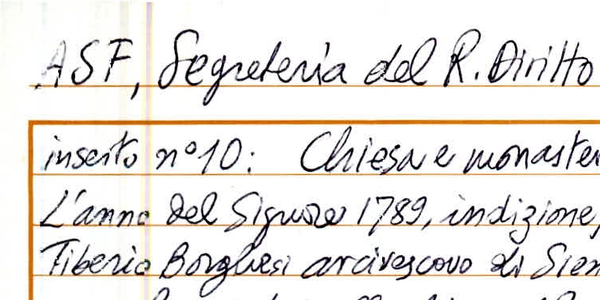 ASF, Segreteria del R. Diritto
inserto n° 10: Chiesa e monaster
L'anno del Signore 1789, indizione,
Tiberio Borghesi arcivescovo di Sien